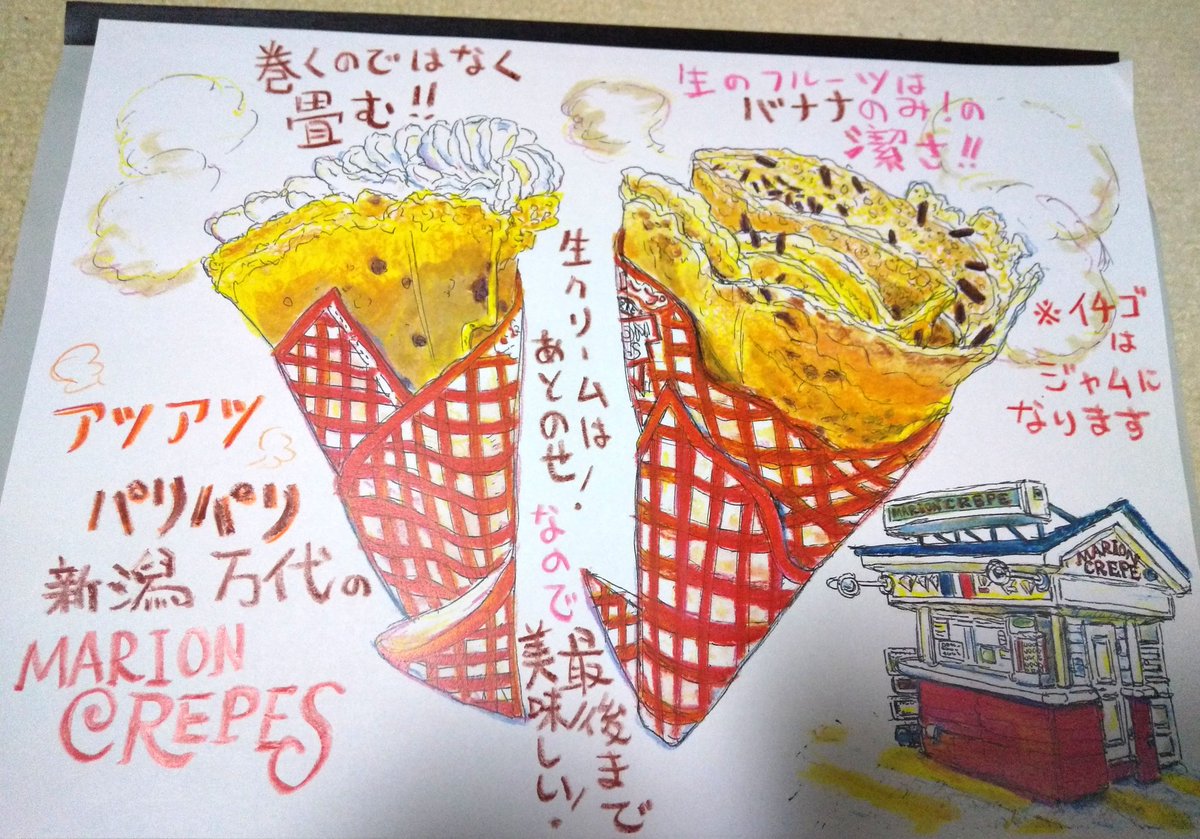 巻くのではなく
畳む!!
生のフルーツは
バナナのみ!の
潔さ!!
生クリームは!
あとのせ
なので
最後まで
美味しい!
※イチゴ
は
ジャムに
なります
アツアツ
パリパリ
新潟 万代の
MARION
CREPES
MARION CREPE
MARION
CREPE